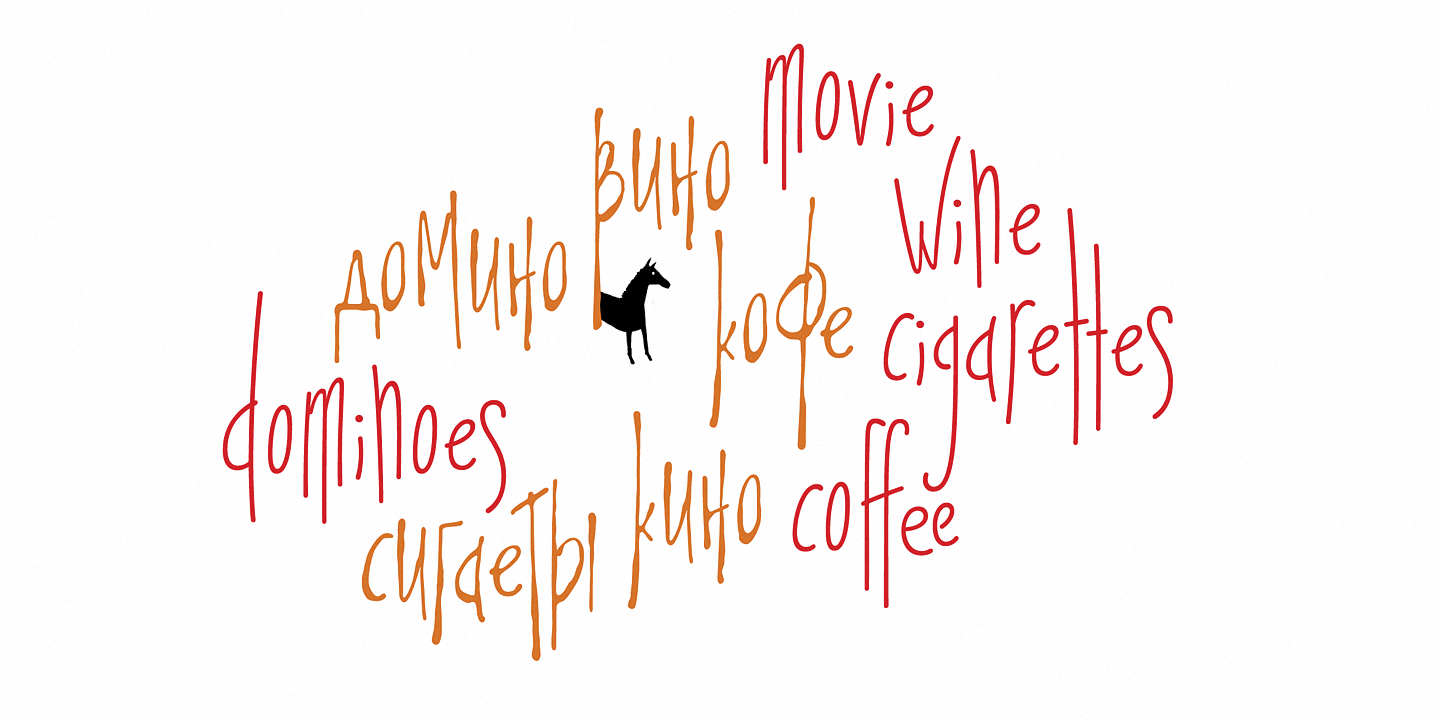 movie
вино
wine
домино
кофе
cigarettes
dominoes
кино
coffee
сигаеты